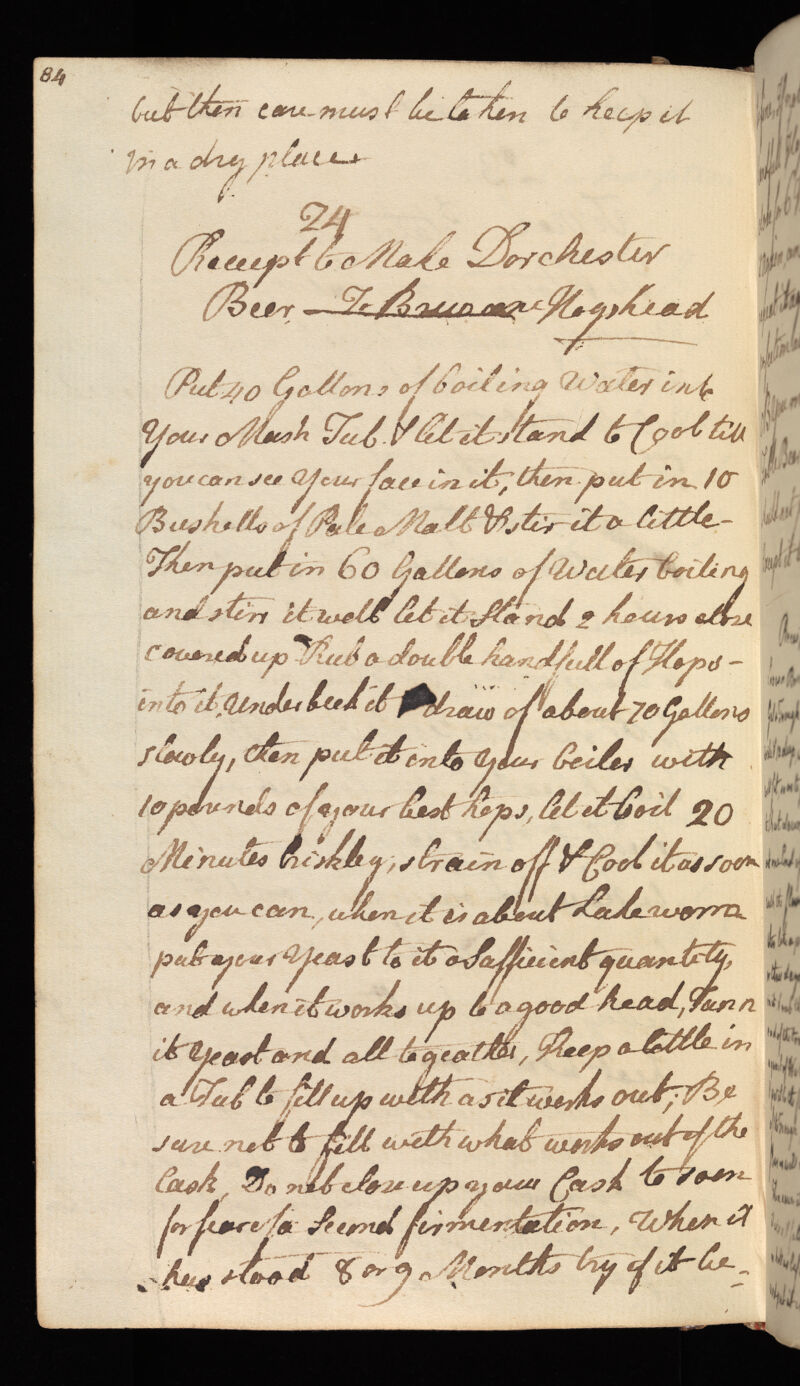 84
but then care must be taken to keep it
in a dry place
24
Receept to Make Dorchester
Beer — To Brew one Hogshead
Put 40 Gallons of boiling Water into
Your Mash Tub & let it stand to Cool till
you can see Your face in it, then put in 10
Bushells of Pale Malt & stir it a little –
Then put in 60 Gallons of Water boiling
and stirr it well let it Stand 2 hours close
covered up Rub a double handfull of Hops –
into it, Underbeck it draw of about 70 Gallons
slowly, then put it into your boiler with
10 pounds of your best hops, let it boil 20
Minutes briskley, strain off & Cool it as soon
as you can, when it is about Lukeworm
put your Yeast to it a Sufficient quantity
and when it works up to a good head, Tunn
it Yeast and all togeather, Keep a little in
a Tub to fill up with as it works out; Be
sure not to fill with what works out of the
Cask, Do not close up your Cask to soon
for fear of a Second firmentation, When it
has stood 8 or 9 Months try if it be –